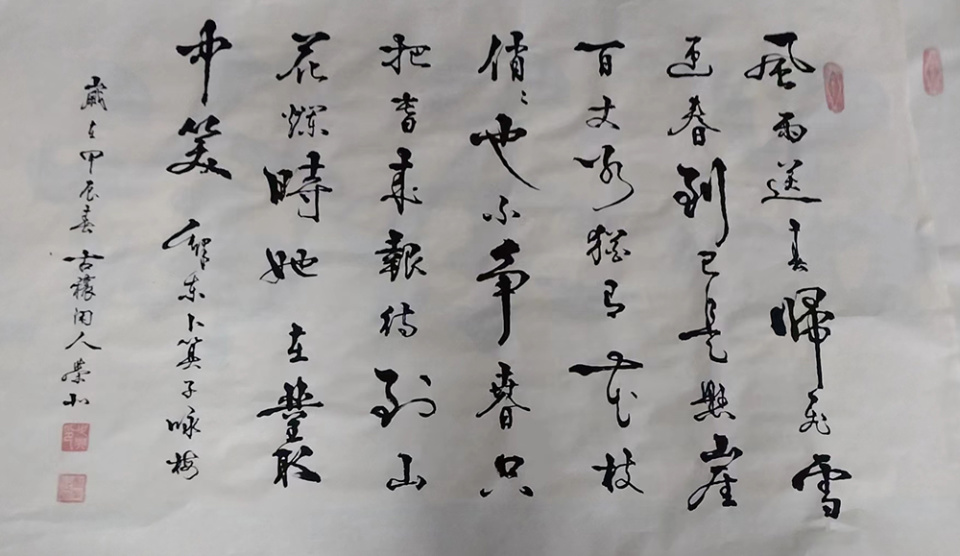 風雨送春歸飛雪
迎春到已是懸崖
百丈冰猶有花枝
俏々也不争春只
把春来報待到山
花爛時她在叢
中笑 毛澤東卜算子咏梅
歲在甲辰春古穰闲人